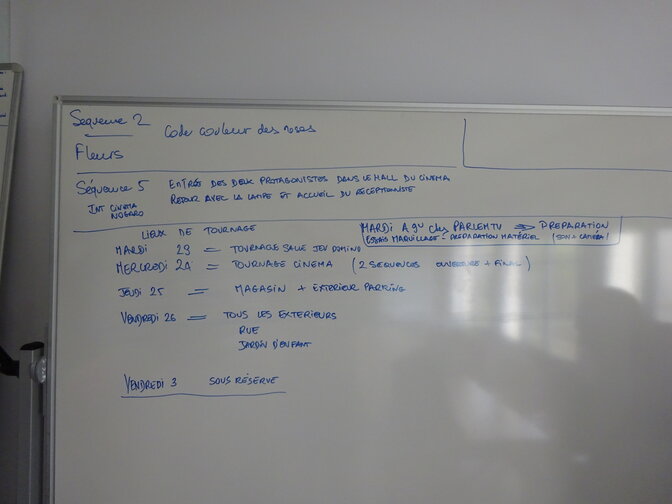 Séquence 2 Code couleur des roses
Fleurs
Séquence 5 ENTRÉE DES DEUX PROTAGONISTES DANS LE HALL DU CINEMA
INT CINEMA RETOUR AVEC LA LAMPE ET ACCUEIL DU RÉCEPTIONNISTE
NOGARO
LIEUX DE TOURNAGE
MARDI A 9H chez PARLEMTV => PREPARATION
ESSAIS MAQUILLAGE - PREPARATION MATÉRIEL (SON + CAMÉRA)
MARDI 23 = TOURNAGE SALLE JEU DOMINO
MERCREDI 24 = TOURNAGE CINEMA (2 SEQUENCES OUVERTURE + FINAL)
JEUDI 25 = MAGASIN + EXTERIEUR PARKING
VENDREDI 26 = TOUS LES EXTERIEURS
RUE
JARDIN D'ENFANT
VENDREDI 3 SOUS RÉSERVE